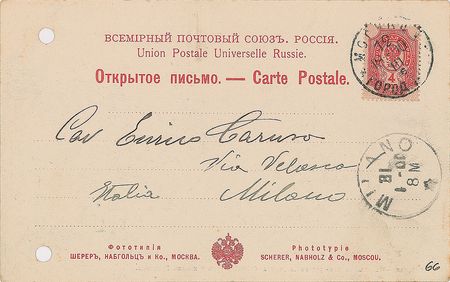 ВСЕМІРНЫЙ ПОЧТОВЫЙ СОЮЗЪ. РОССІЯ.
Union Postale Universelle Russie.
Открытое письмо. — Carte Postale.
ГОРОД
4
Cav Enrico Caruso
Via Velasca
Italia Milano
MILANO
8 M
Фототипія
ШЕРЕРЪ, НАБГОЛЬЦЪ и Ко., МОСКВА.
Phototypie
SCHERER, NABHOLZ & Co., MOSCOU.
66